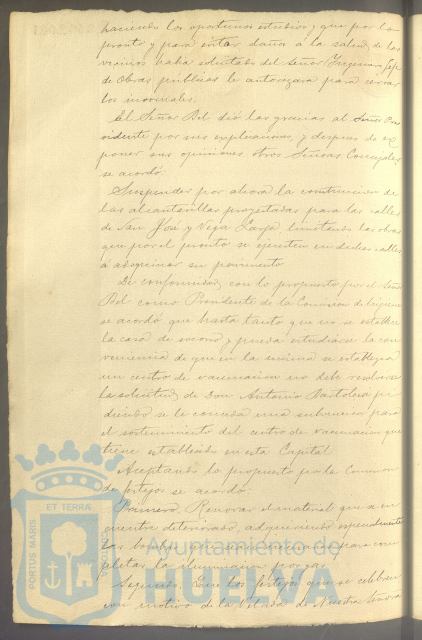 haciendo los oportunos estudios y que por lo
pronto y para evitar daños á la salud de los
vecinos había solicitado del Señor Ingeniero Jefe
de Obras públicas le autorizara para cerrar
los
El Señor Bel dió las gracias al Señor Pre
sidente por sus explicaciones, y despues de ex
poner sus opiniones otros Señores Concejales
se acordó:
Suspender por ahora la construcción de
las alcantarillas proyectadas para las calles
de San José y Vega Larga limitando las obras
que por el pronto se ejecuten en dichas calles
á adoquinar su pavimento.
De conformidad con lo propuesto por el Señor
Bel como Presidente de la Comisión de
se acordó que hasta tanto que no se establezca
la casa de socorro y pueda estudiarse la con
veniencia de que en la misma se establezca
un centro de vacunación no debe resolverse
la solicitud de Don Antonio pi
diendo se le conceda una subvencion para
el sostenimiento del centro de vacunación que
tiene establecido en esta Capital.
Aceptando lo propuesto por la Comision
de festejos se acordó:
Primero. Renovar el material que se en
cuentre deteriorado, adquiriendo especialmente
las bombas para com
pletar la iluminacion por gas.
Segundo. Que los festejos que se celebren
con motivo de la Velada de Nuestra Señora
PORTUS MARIS
ET TERRA
CUSTODIA
Ayuntamiento de
HUELVA